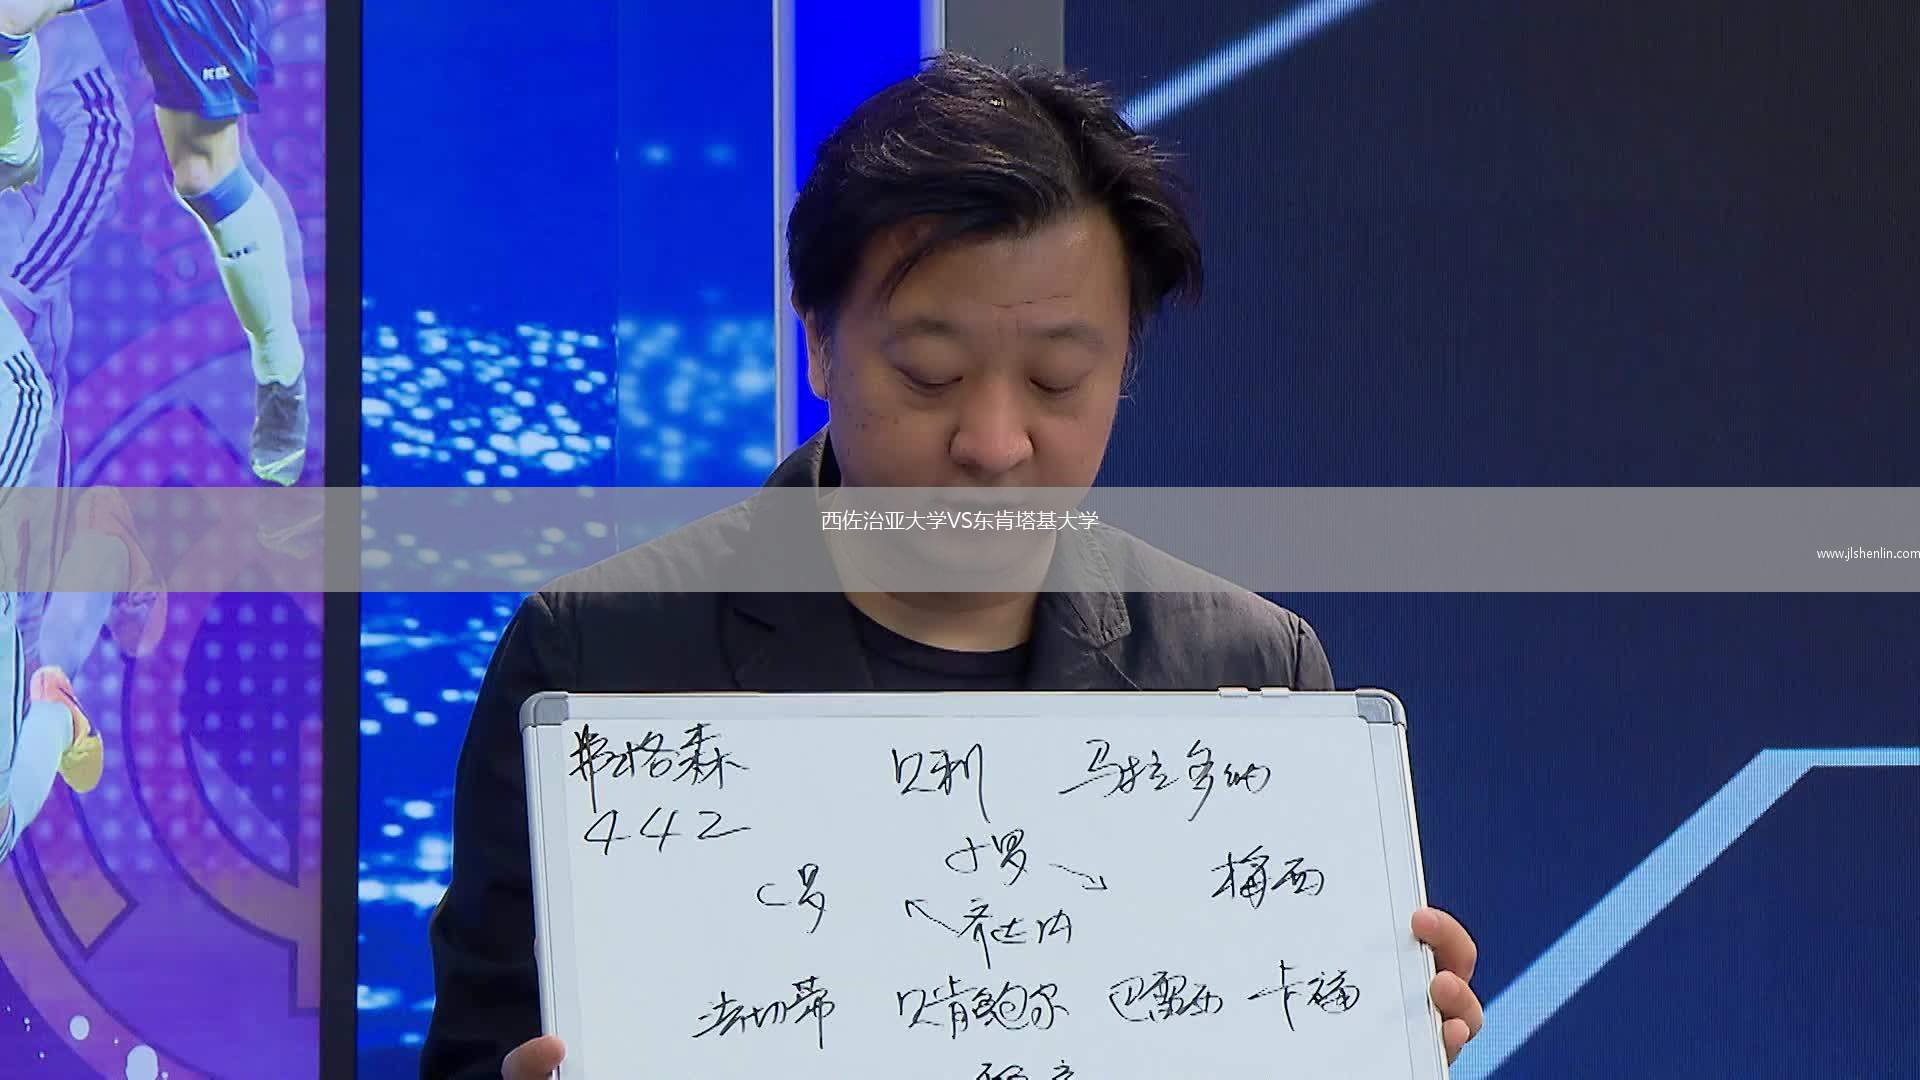 KEL
西佐治亚大学VS东肯塔基大学
www.jlshenlin.com
弗格森 贝利 马拉多纳
442
小罗
C罗 梅西
齐达内
法切蒂 贝肯鲍尔 巴雷西 卡福